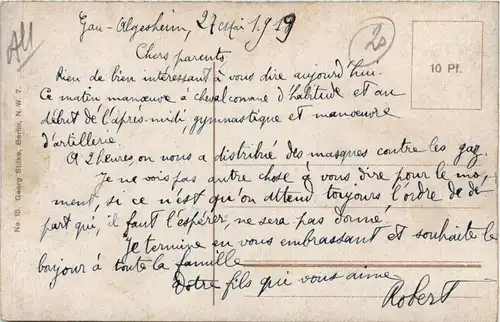 All
Gau-Algesheim, 27 Mai 1919
20
Chers parents
10 Pf.
Rien de bien intéressant à vous dire aujourd'hui.
Ce matin manœuvre à cheval comme d'habitude et au
début de l'après-midi gymnastique et manœuvre
d'artillerie.
A 2 heures, on nous a distribué des masques contre les gaz.
Je ne vois pas autre chose à vous dire pour le mo-
ment, si ce n'est qu'on attend toujours l'ordre de dé-
part qui, il faut l'espérer, ne sera pas donné.
Je termine en vous embrassant et souhaite le
bonjour à toute la famille
Votre fils qui vous aime
Robert
No. 10. Georg Stilke, Berlin, N. W. 7.